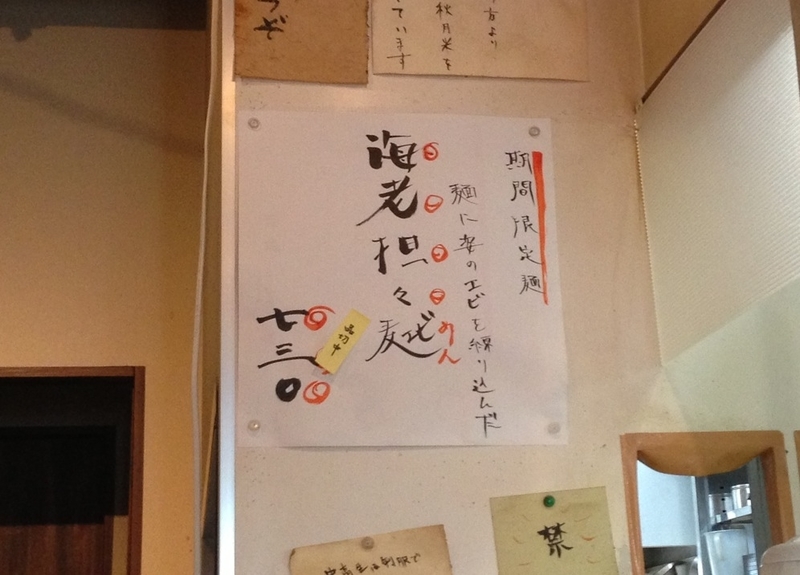 方より
秋月米を
ています
うぞ
期間限定麺
麺に姿のエビを練り込んだ
海老担々麺
めん
品切中
七三〇
禁
中高生は制服で